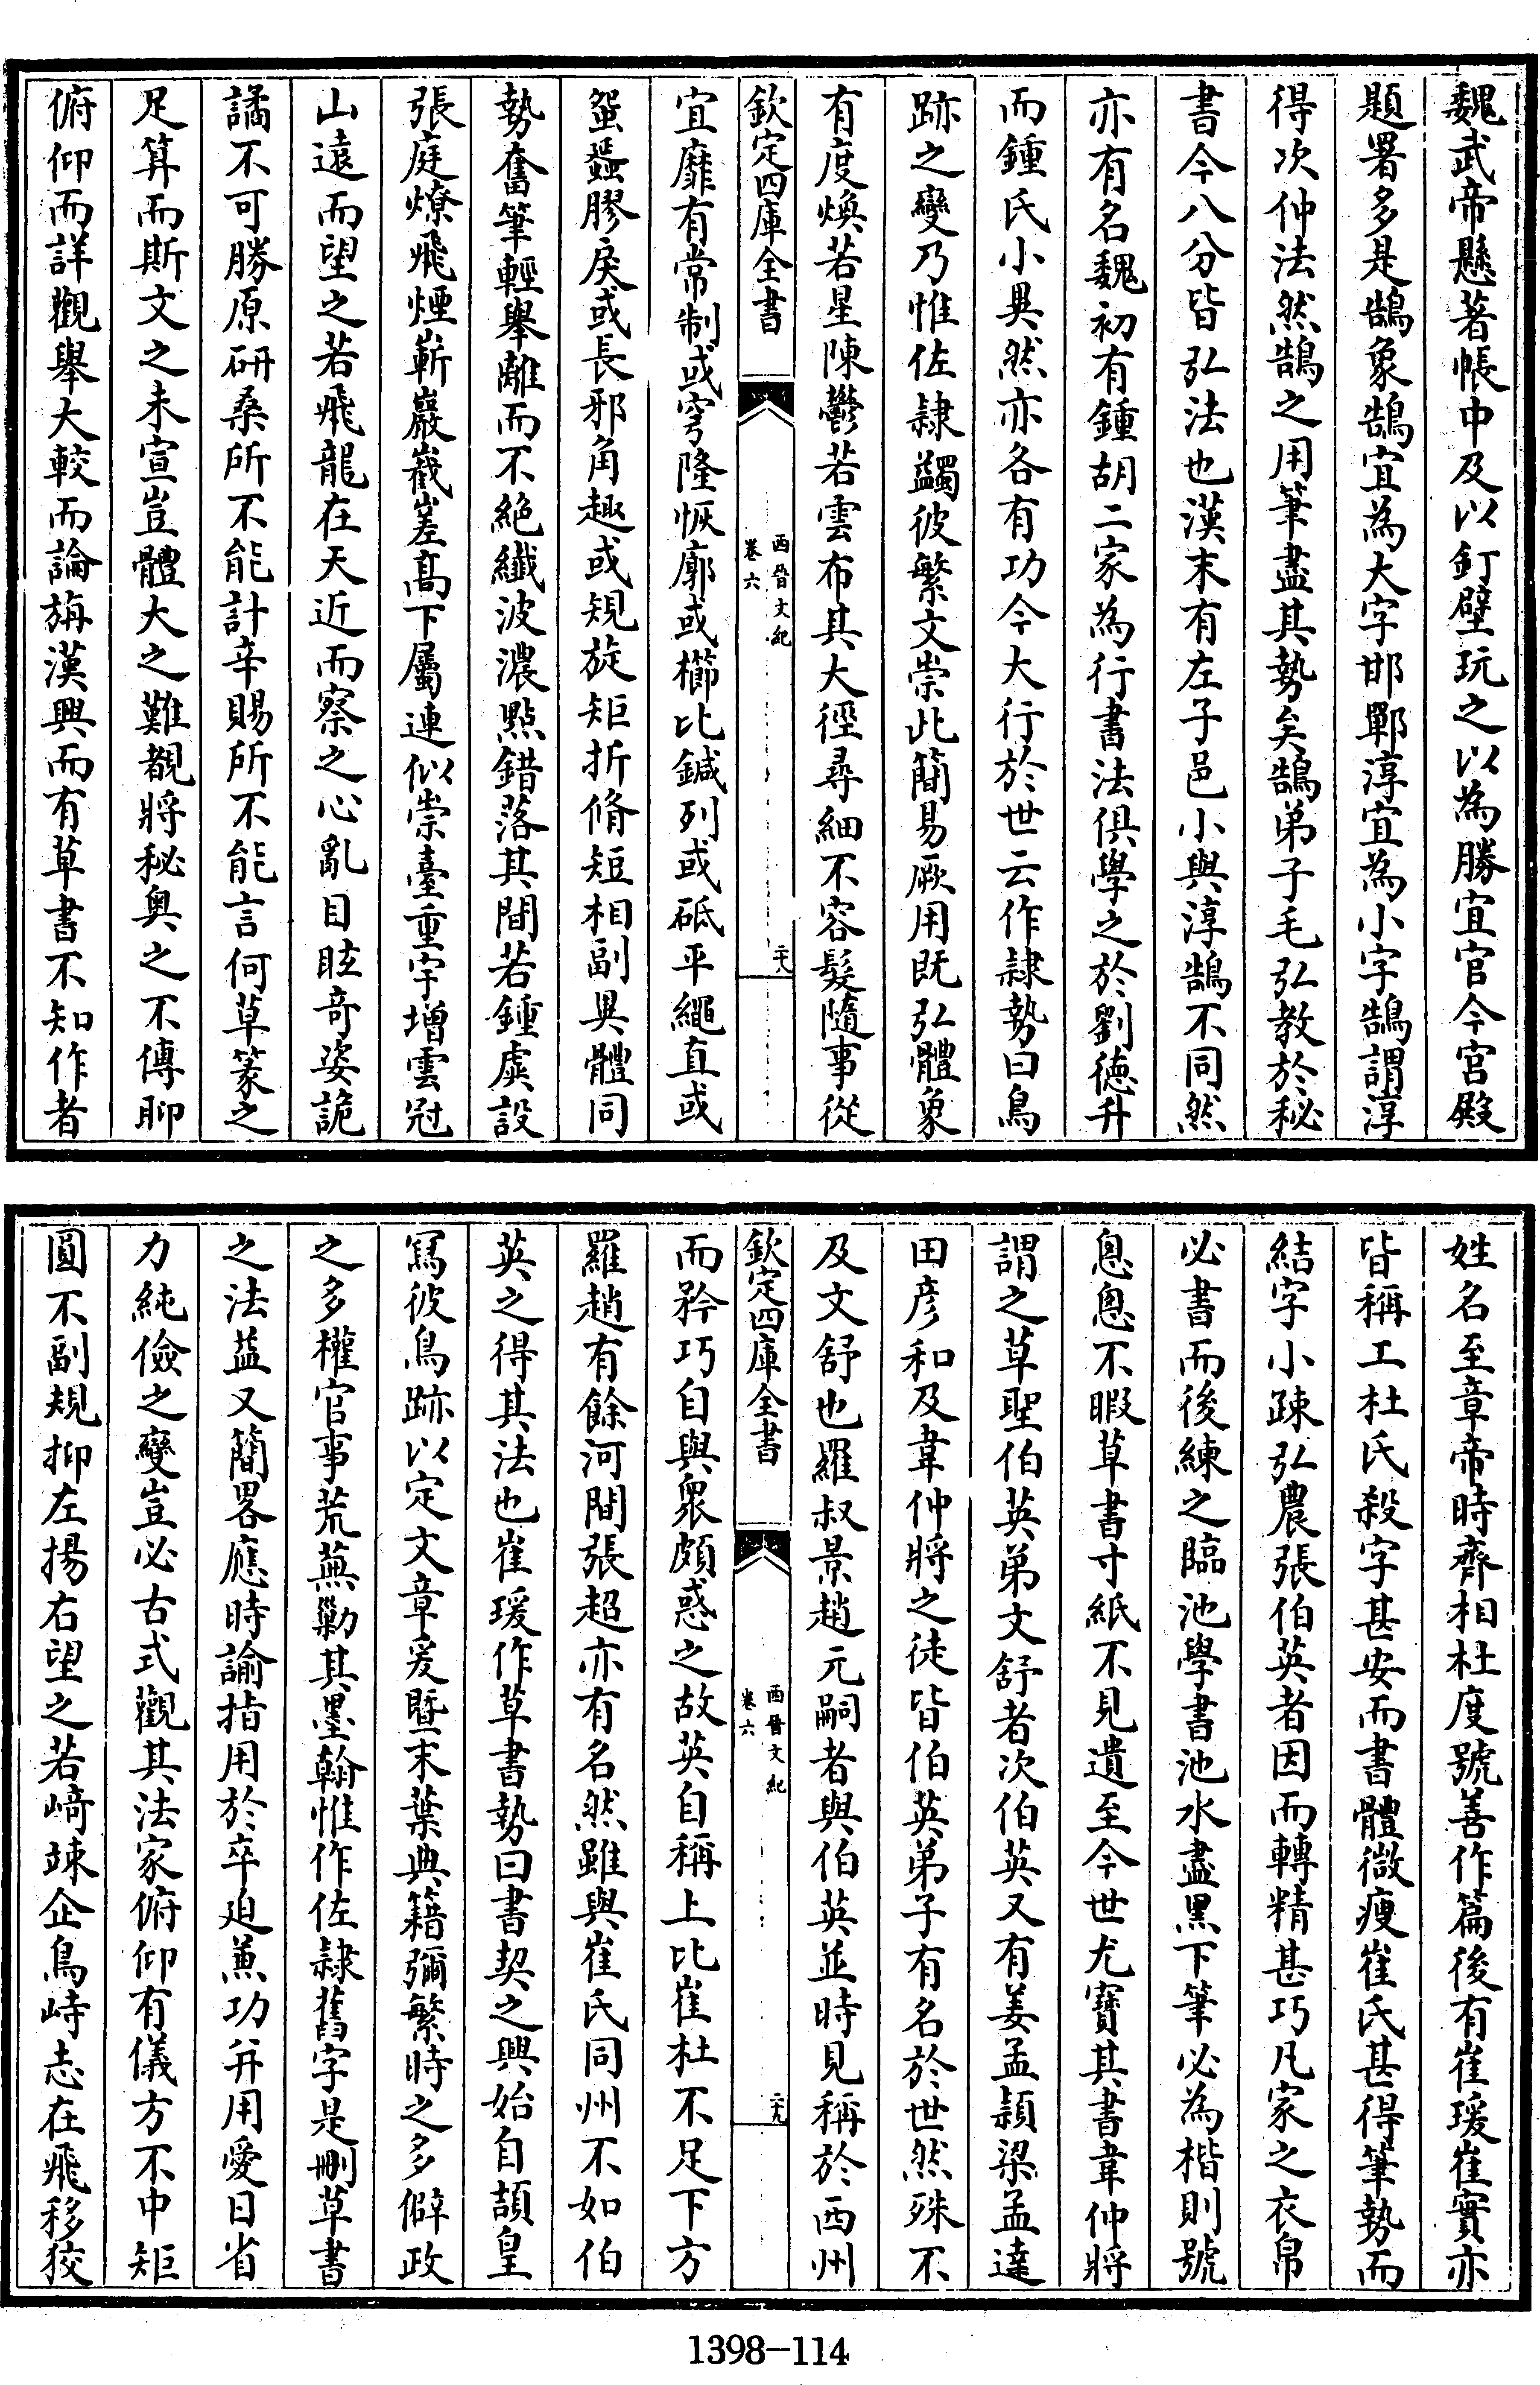 魏武帝懸著帳中及以釘壁玩之以為勝宜官今宮殿
題署多是鵠象鵠宜為大字邯鄲淳宜為小字鵠謂淳
得次仲法然鵠之用筆盡其勢矣鵠弟子毛弘教於秘
書今八分皆弘法也漢末有左子邑小與淳鵠不同然
亦有名魏初有鍾胡二家為行書法俱學之於劉德升
而鍾氏小異然亦各有功今大行於世云作隷勢曰鳥
跡之變乃惟佐隷蠲彼繁文崇此簡易厥用既弘體象
有度煥若星陳鬱若雲布其大徑尋細不容髮隨事從
欽定四庫全書
西晉文紀
卷六
二十八
宜靡有常制或穹隆恢廓或櫛比鍼列或砥平繩直或
蜿蜒膠戾或長邪角趣或規旋矩折脩短相副異體同
勢奮筆輕舉離而不絕纖波濃點錯落其間若鍾虡設
張庭燎飛煙嶄巖嶻嵳高下屬連似崇臺重宇增雲冠
山遠而望之若飛龍在天近而察之心亂目眩奇姿詭
譎不可勝原研桑所不能計辛賜所不能言何草篆之
足算而斯文之未宣豈體大之難覩將秘奥之不傳聊
俯仰而詳觀舉大較而論旃漢興而有草書不知作者
姓名至章帝時齊相杜度號善作篇後有崔瑗崔寔亦
皆稱工杜氏殺字甚安而書體微瘦崔氏甚得筆勢而
結字小疎弘農張伯英者因而轉精甚巧凡家之衣帛
必書而後練之臨池學書池水盡黑下筆必為楷則號
悤悤不暇草書寸紙不見遺至今世尤寶其書韋仲將
謂之草聖伯英弟文舒者次伯英又有姜孟頴梁孟達
田彦和及韋仲將之徒皆伯英弟子有名於世然殊不
及文舒也羅叔景趙元嗣者與伯英並時見稱於西州
欽定四庫全書
西晉文紀
卷六
二十九
而矜巧自與衆頗惑之故英自稱上比崔杜不足下方
羅趙有餘河間張超亦有名然雖與崔氏同州不如伯
英之得其法也崔瑗作草書勢曰書契之興始自頡皇
寫彼鳥跡以定文章爰暨末葉典籍彌繁時之多僻政
之多權官事荒蕪勦其墨翰惟作佐隷舊字是刪草書
之法葢又簡畧應時諭指用於卒迫兼功并用愛日省
力純儉之變豈必古式觀其法家俯仰有儀方不中矩
圓不副規抑左揚右望之若﨑竦企鳥峙志在飛移狡
1398-114